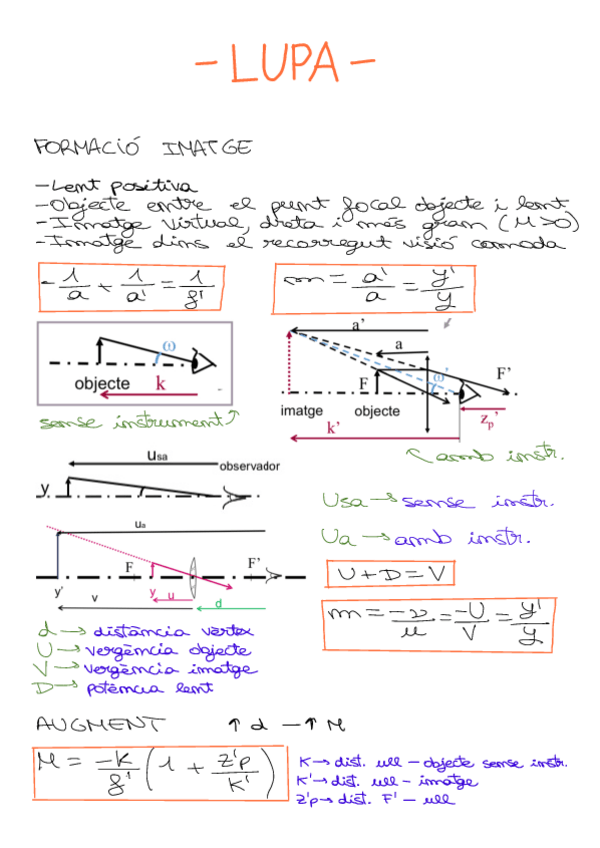 - LUPA -
FORMACIÓ IMATGE
- Lent positiva
- Objecte entre el punt focal objecte i lent
- Imatge virtual, dreta i més gran (M>0)
- Imatge dins el recorregut visió comoda
-1/a + 1/a' = 1/f'
m = a'/a = y'/y
ω
objecte
k
sense instrument
a'
a
F
ω'
F'
imatge
objecte
zp'
k'
amb instr.
usa
observador
y
Usa → sense instr.
Ua → amb instr.
ua
F
F'
y'
v
y
u
d
U + D = V
m = -v/u = -U/V = y'/y
d → distància vèrtex
U → vergència objecte
V → vergència imatge
D → potència lent
AUGMENT ↑ d - ↑ M
M = -k/f' (1 + z'p/k')
K → dist. ull - objecte sense instr.
K' → dist. ull - imatge
z'p → dist. F' - ull